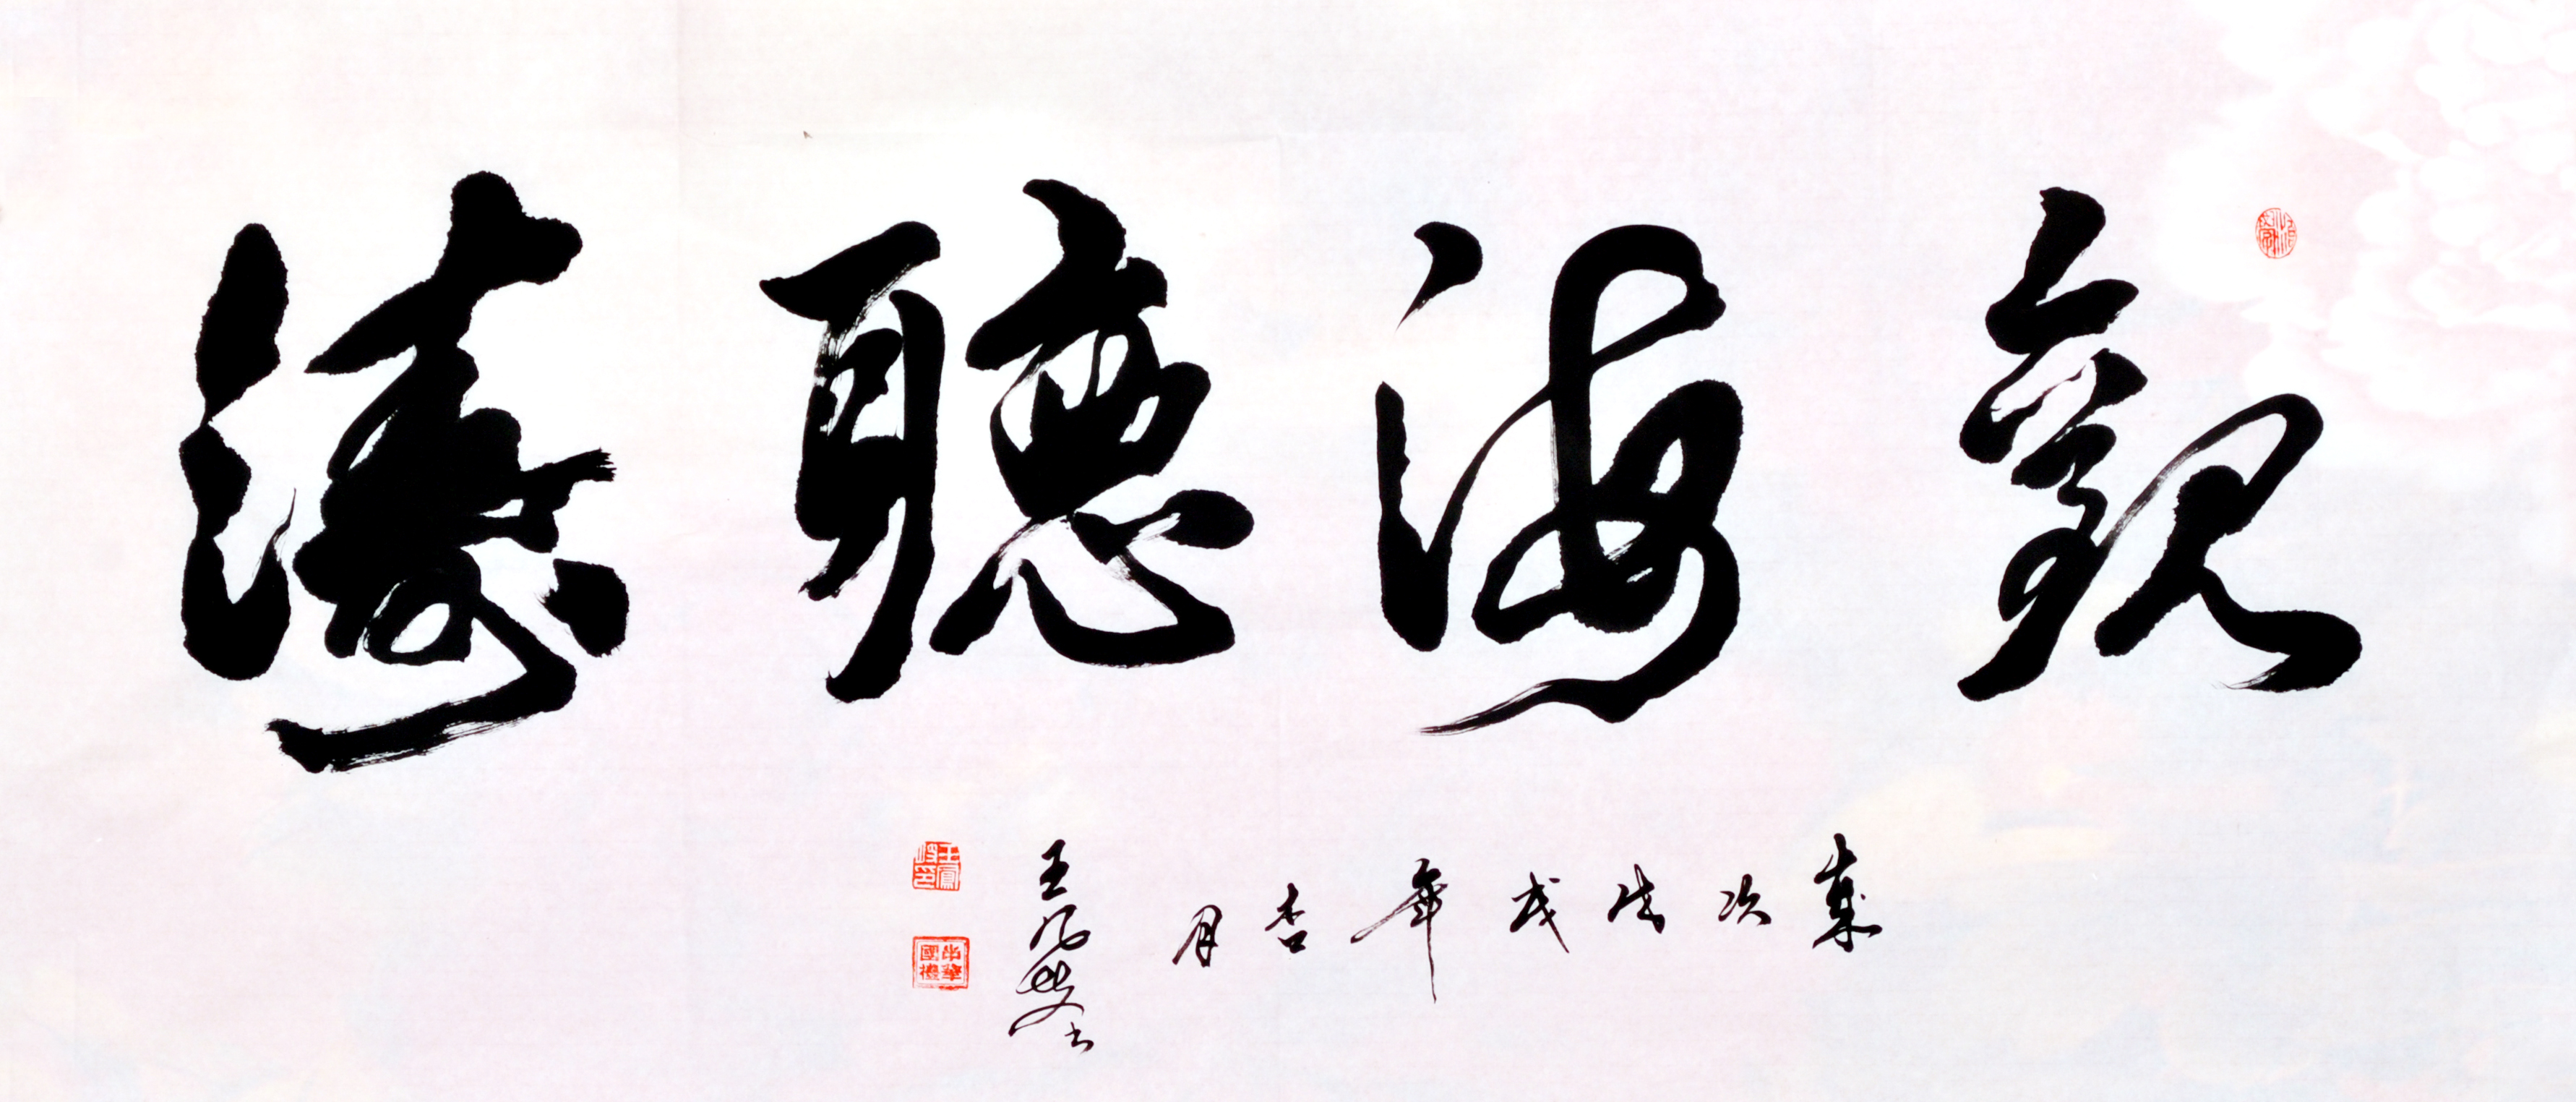 觀海聽濤
歲次戊戌年杏月
王鳳